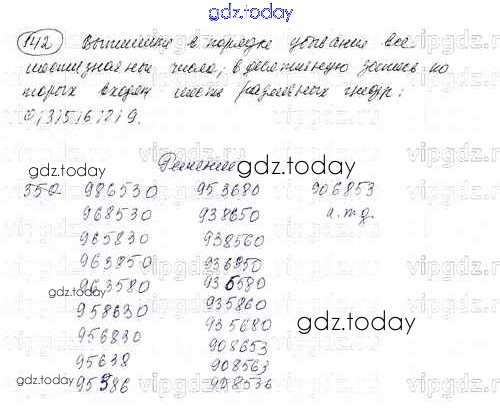 gdz.today
142 Выпишите в порядке убывания все
шестизначные числа, в десятичную запись ко
торых входят шесть различных цифр:
0,3,5,6,8,9.
Решение
gdz.today
350 986530 953680 906853
968530 938650 и.т.д.
965830 938560
963850 936850
963580 936580
gdz.today
958630 935860
956830 935680
gdz.today
95638 908653
908563
gdz.today
95386 908536